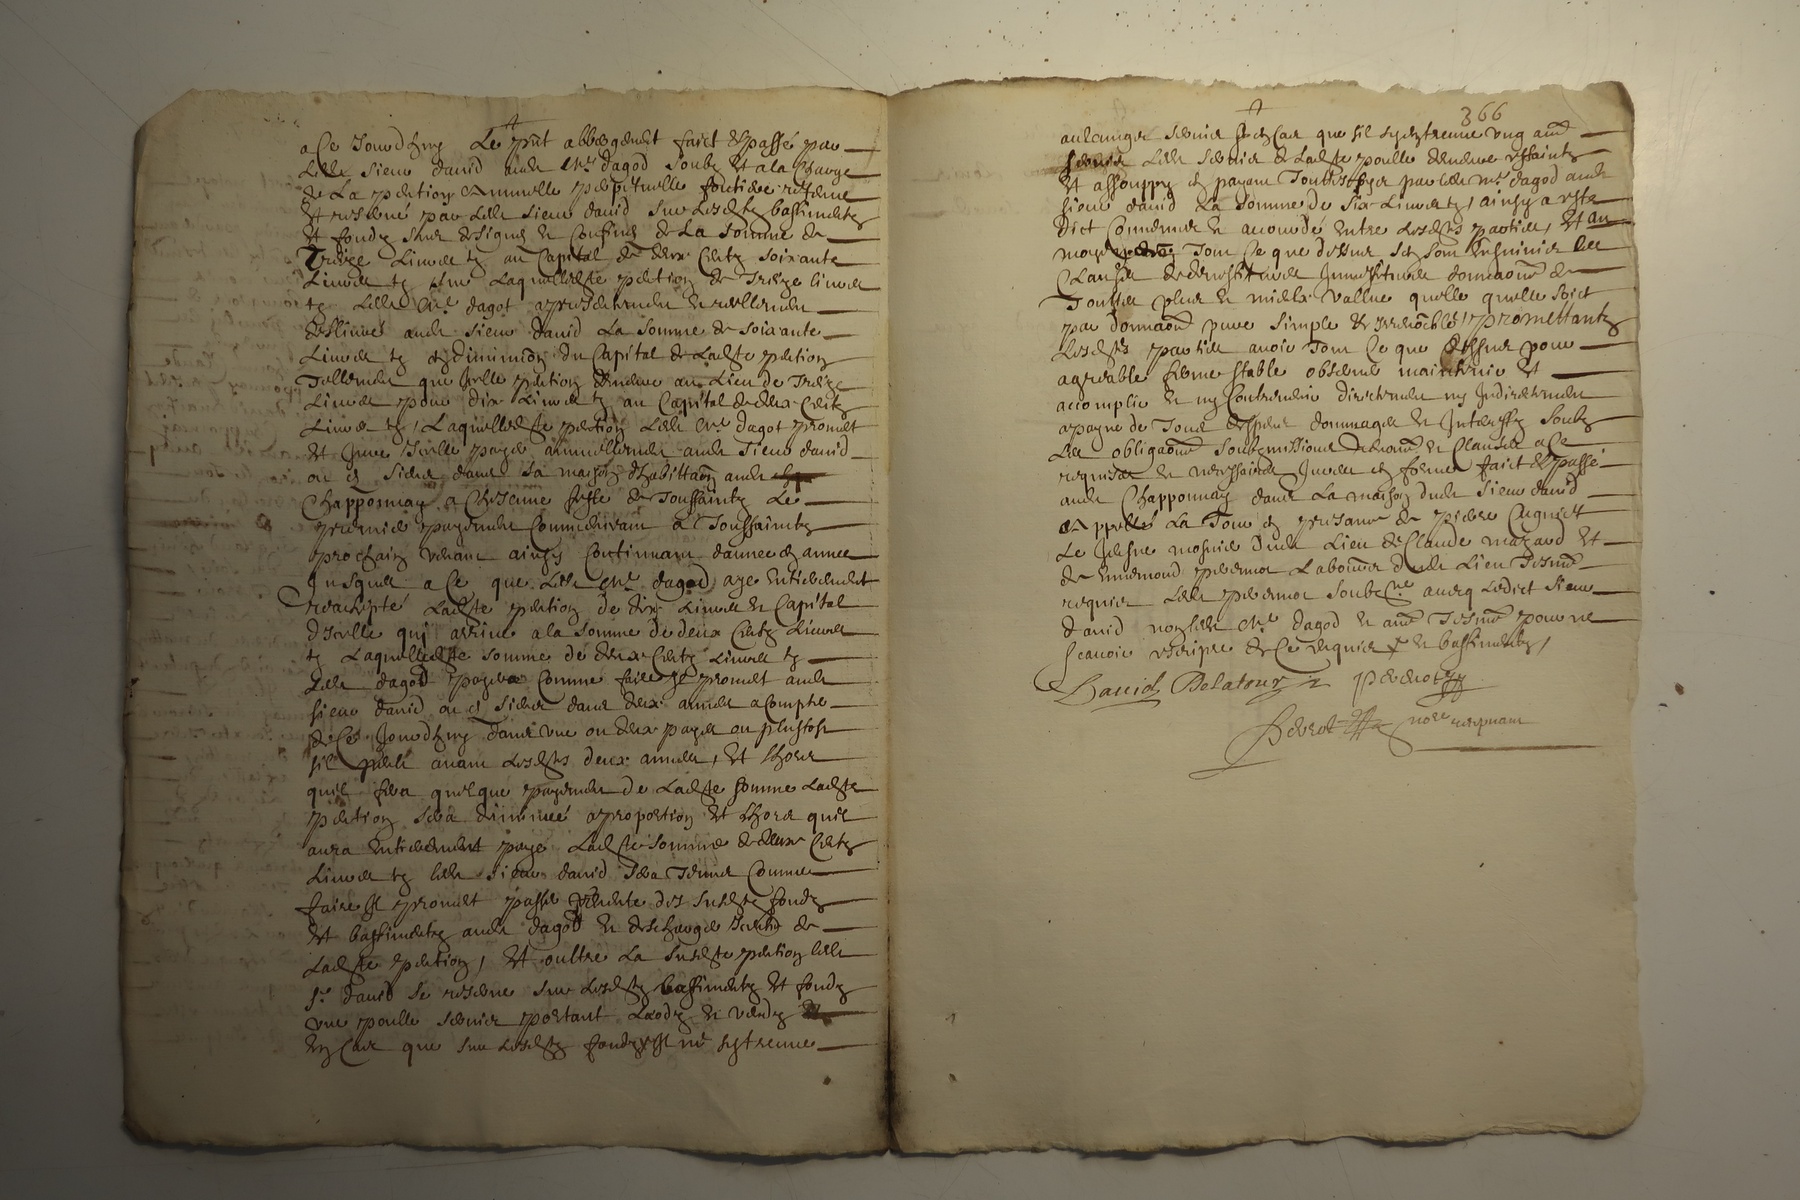 a ce Jourdhuy Le pnt abbergement faict & passé par
Ledt Sieur david audt Mre dagod soubz et a la charge
de La pention Annuelle perpetuelle fontiere reserve
et reservé par Ledt Sieur david sur lesdtz bastimentz
et fondz sus designes et confines de La somme de
Treize Livres tz au Capital de deux centz soixante
Livres tz sur Laquelledte pention de treize livres
tz Ledt Mre dagot presentement reellement
deslivré audt sieur david La somme de soixante
Livres tz diminution du Capital de Ladte pention
Tellement que Jcelle pention demeure au Lieu de Treize
Livres pour dix Livres tz au Capital de deux centz
Livres tz, Laquelledte pention Ledt Mre dagot promet
et Jure Jcelle payer annuellement audt sieur david
ou es siens dans sa maison dhabittaon audt
Chapponnay a chescune feste de Toussaintz Le
premier payement commencant a la Toussaintz
prochain venant ainsy continuant dannee en annee
Jusques a ce que Ledt Mre dagod aye entierement
Ladte pention de dix Livres en Capital
dJcelle qui arrive a la somme de deux centz Livres
tz Laquelledte somme de deux centz Livres tz
Ledt dagod payera comme faire Jl promet audt
sieur david ou es siens dans deux annees a compter
de ce Jourdhuy dans une ou deux payes ou plustost
sil peult avant lesdts deux annees, et Lhors
quil fera quelque payement de Ladte somme Ladte
pention sera diminué a proportion et Lhors quil
aura entierement payé Ladte somme de deux centz
Livres tz ledt sieur david sera Tenus comme
faire Jl promet passer des susdtz fondz
et bastimentz audt dagod en descharge de
Ladte pention, et oultre La susdte pention ledt
sr david se reserve sur lesdtz bastimentz et fondz
une poulle servis portant Laodz et vendz
en cas que sur lesdtz fondz Jl ne sy treuve
366
aulcungs servis en cas que sil sy treuve ung aultre
servis Ledt servis de Ladte poulle demeure estaintz
et assouppy en payant Toutesfoys par ledt Mre dagod audt
sieur david La somme de six Livres tz, ainsy a esté
dict convenus et accordé entre lesdts parties, et au
moyen Tout ce que dessus sen sont lesdt
Clauses de devestitures Jnvestitures donnaons de
Toutes plus et mieulx vallue quelle quelle soict
par donnaon pure simple & Jrrevocble, promettantz
lesdts parties avoir Tout ce que dessus pour
agreable ferme stable observer maintenir et
accomplir et ny Contrevenir directement ny Jndirectement
a payne de Tous despens dommages et Jnterestz soubz
Les obligaons soubzmissions renonon et Clauses a ce
requises et necessaires Jurees et ferme faict & passé
audt Chapponnay dans La maison dudt sieur david
Appellé La Tour en presance de pierre Cugniet
Le Jeusne mosnier dudt Lieu de Claude mazard et
de ennemond peverot Laboureur dudt Lieu Tesmz
requis Ledt peverot soubzne avecq Ledict sieur
david non ledt Mre dagod et aultre Tesmz pour ne
scavoir escripre de ce requis & et bastimentz,
David Delatour peverot
peverot nore recepvant